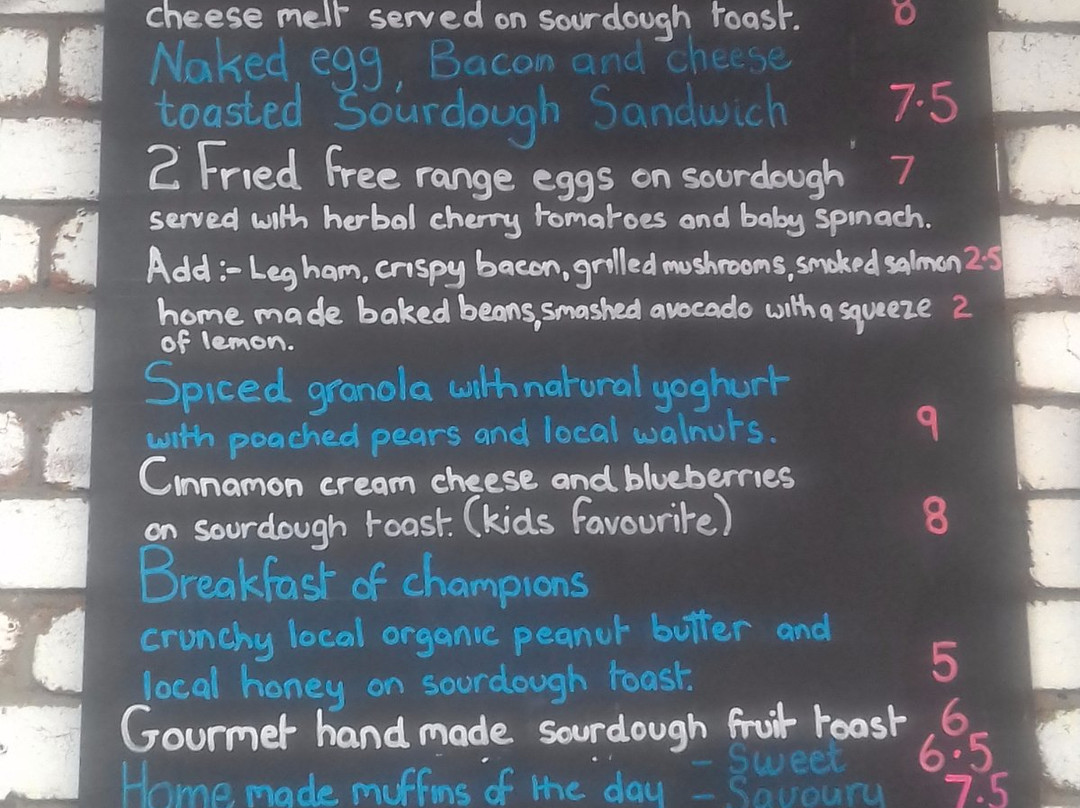 cheese melt served on sourdough toast. 8
Naked egg, Bacon and cheese
toasted Sourdough Sandwich 7.5
2 Fried free range eggs on sourdough 7
served with herbal cherry tomatoes and baby spinach.
Add :- Leg ham, crispy bacon, grilled mushrooms, smoked salmon 2.5
home made baked beans, smashed avocado with a squeeze 2
of lemon.
Spiced granola with natural yoghurt
with poached pears and local walnuts. 9
Cinnamon cream cheese and blueberries
on sourdough toast. (kids favourite) 8
Breakfast of champions
crunchy local organic peanut butter and
local honey on sourdough toast. 5
Gourmet hand made sourdough fruit toast 6
- Sweet 6.5
Home made muffins of the day - Savoury 7.5